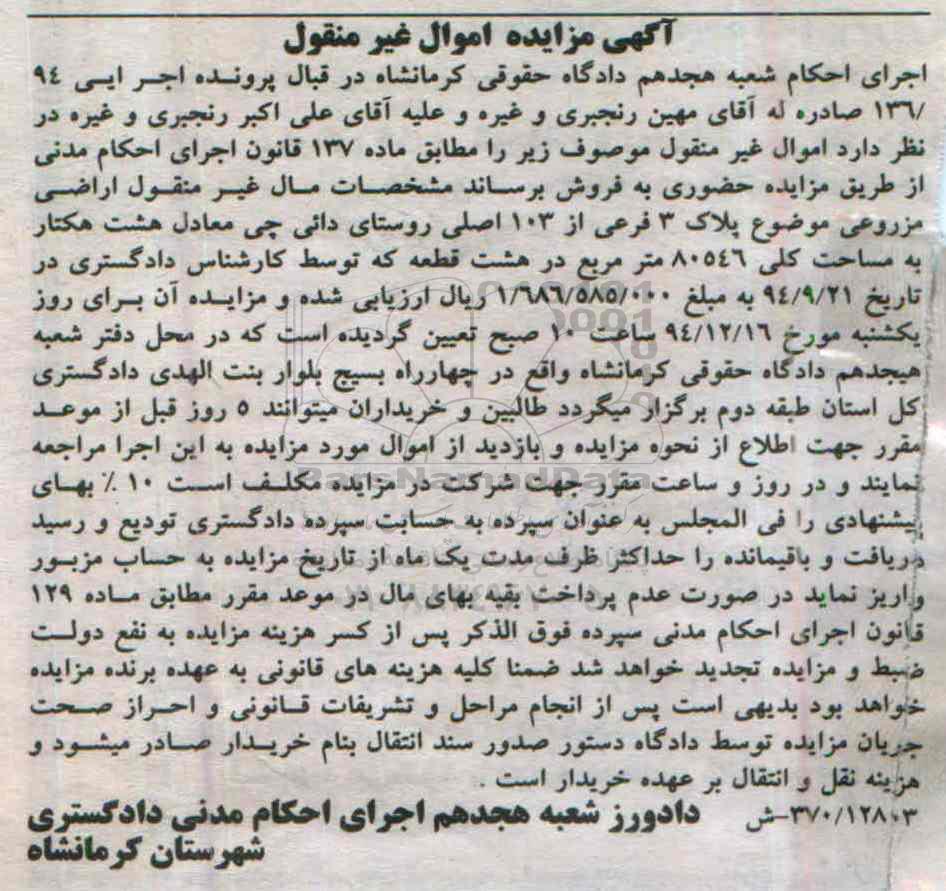 آگهی مزایده اموال غیر منقول
اجرای احکام شعبه هجدهم دادگاه حقوقی کرمانشاه در قبال پرونده اجر ایی ٩٤
/١٣٦ صادره له آقای مهین رنجبری و غیره و علیه آقای علی اکبر رنجبری و غیره در
نظر دارد اموال غیر منقول موصوف زیر را مطابق ماده ١٣٧ قانون اجرای احکام مدنی
از طریق مزایده حضوری به فروش برساند مشخصات مال غیر منقول اراضی
مزروعی موضوع پلاک ٣ فرعی از ١٠٣ اصلی روستای دائی چی معادل هشت هکتار
به مساحت کلی ٨٠٥٤٦ متر مربع در هشت قطعه که توسط کارشناس دادگستری در
تاریخ ٩٤/٩/٢١ به مبلغ ١/٦٨٦/٥٨٥/٠٠٠ ریال ارزیابی شده و مزایده آن برای روز
یکشنبه مورخ ٩٤/١٢/١٦ ساعت ١٠ صبح تعیین گردیده است که در محل دفتر شعبه
هیجدهم دادگاه حقوقی کرمانشاه واقع در چهارراه بسیج بلوار بنت الهدی دادگستری
کل استان طبقه دوم برگزار میگردد طالبین و خریداران میتوانند ٥ روز قبل از موعد
مقرر جهت اطلاع از نحوه مزایده و بازدید از اموال مورد مزایده به این اجرا مراجعه
نمایند و در روز و ساعت مقرر جهت شرکت در مزایده مکلف است ١٠ ٪ بهای
پیشنهادی را فی المجلس به عنوان سپرده به حسابت سپرده دادگستری تودیع و رسید
دریافت و باقیمانده را حداکثر ظرف مدت یک ماه از تاریخ مزایده به حساب مزبور
واریز نماید در صورت عدم پرداخت بقیه بهای مال در موعد مقرر مطابق ماده ١٢٩
قانون اجرای احکام مدنی سپرده فوق الذکر پس از کسر هزینه مزایده به نفع دولت
ضبط و مزایده تجدید خواهد شد ضمنا کلیه هزینه های قانونی به عهده برنده مزایده
خواهد بود بدیهی است پس از انجام مراحل و تشریفات قانونی و احراز صحت
جریان مزایده توسط دادگاه دستور صدور سند انتقال بنام خریدار صادر میشود و
هزینه نقل و انتقال بر عهده خریدار است .
٣٧٠/١٢٨٠٣-ش دادورز شعبه هجدهم اجرای احکام مدنی دادگستری
شهرستان کرمانشاه
ParsNamadData